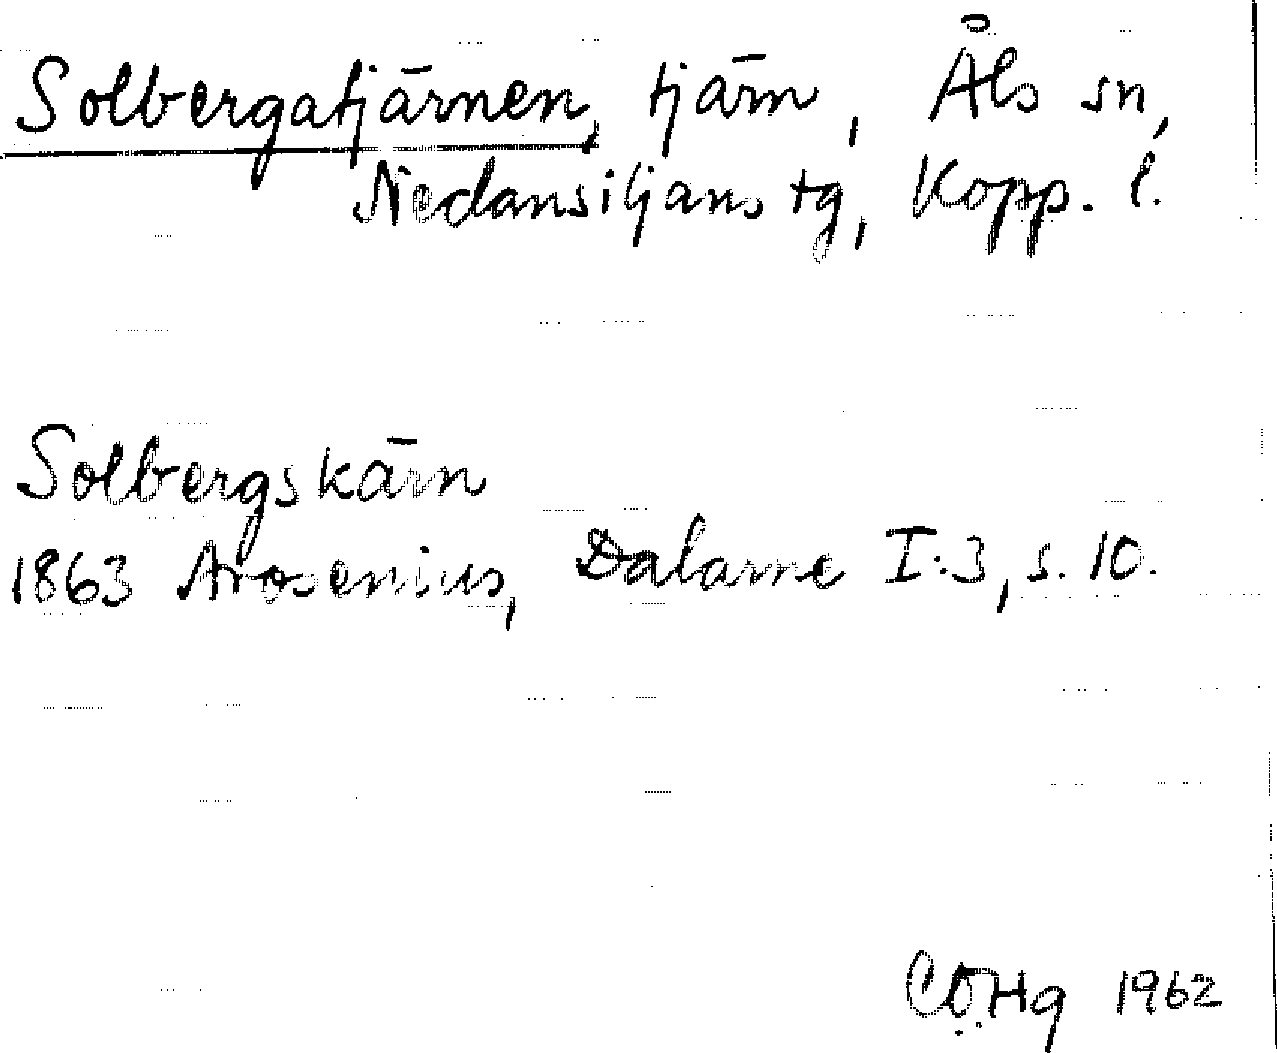 Solbergatjärnen, tjärn, Åls sn,
Nedansiljans tg, Kopp. l.
Solbergskärn
1863 Arosenius, Dalarne I:3, s. 10.
CÖHg 1962